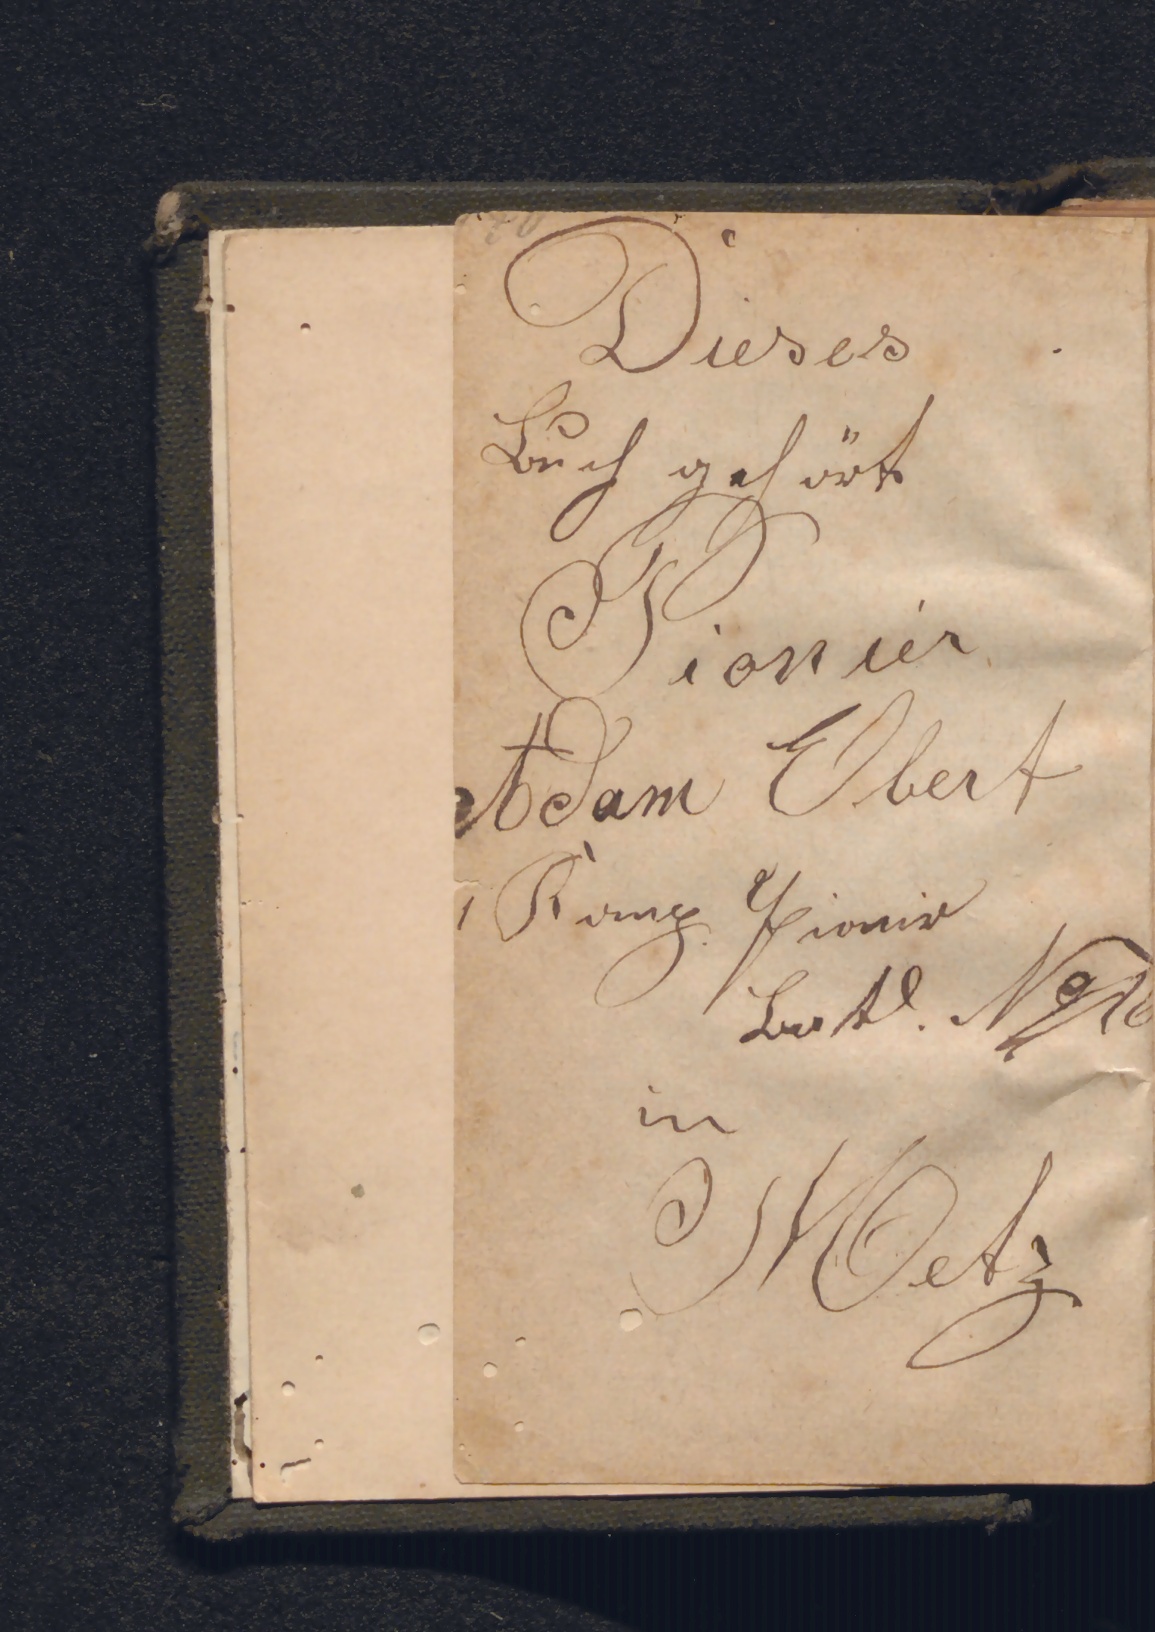 Dieses
Buch gehört
Pionier
Adam Ebert
1 Komp. Pionir
Batl. No 16
in
Metz